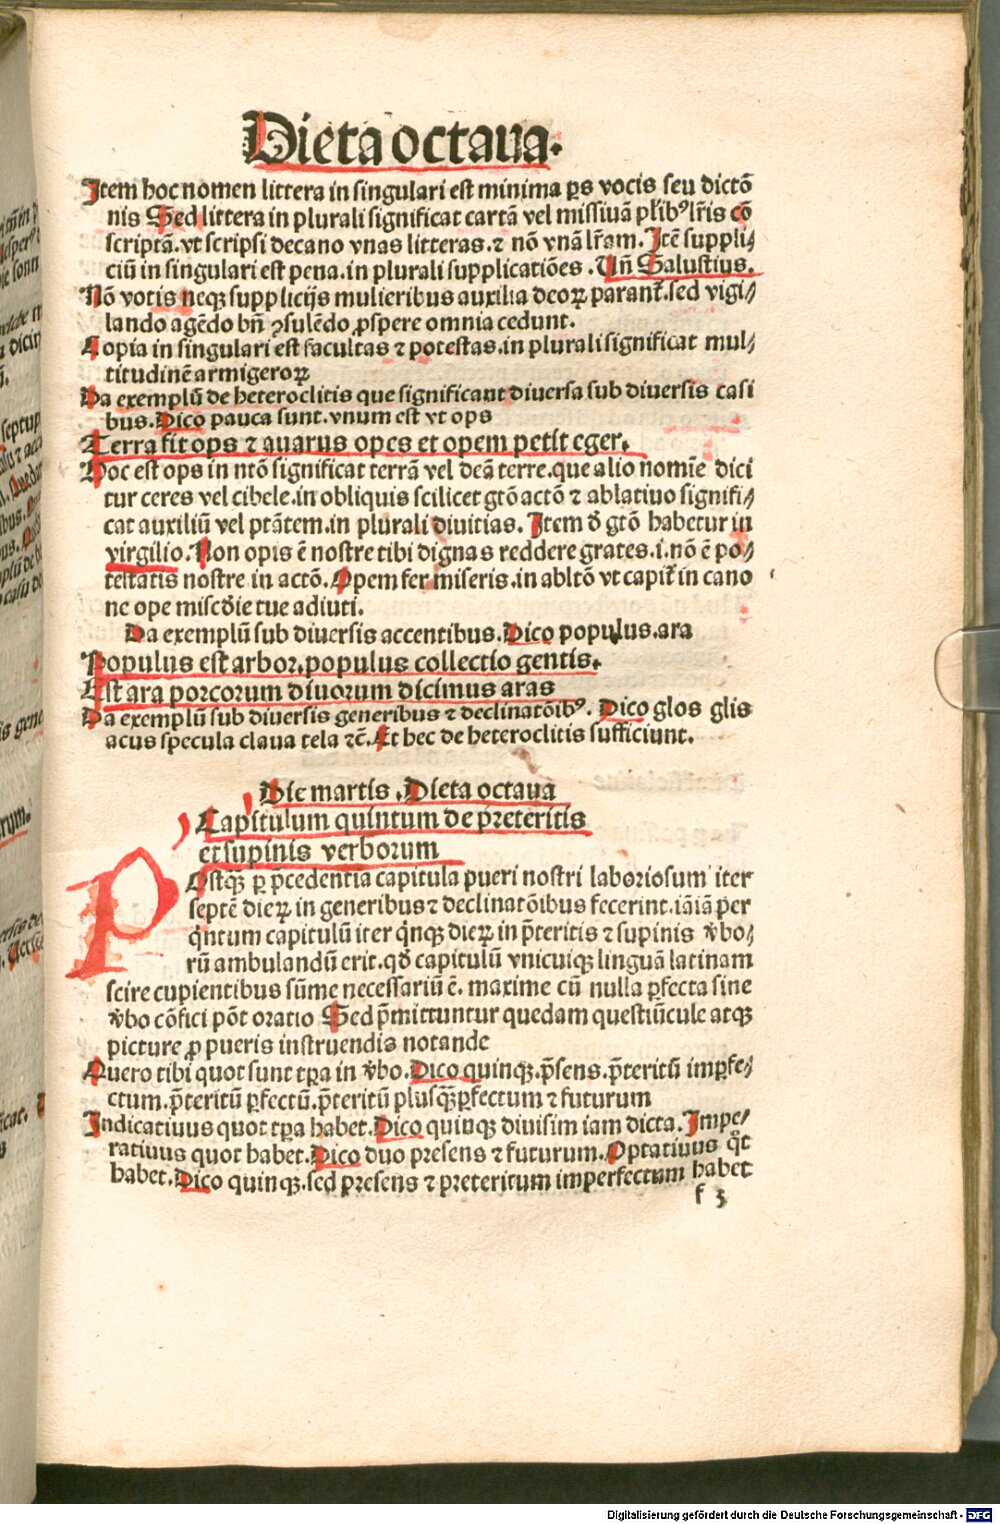 Dieta octaua.
Item hoc nomen littera in singulari est minima ꝑs vocis seu dictō
nis Sed littera in plurali significat cartā vel missiuā pl'ibꝰ lr̄is cō
scriptā. vt scripsi decano vnas litteras. ⁊ nō vnā lr̄am. Itē suppli⸗
ciū in singulari est pena. in plurali supplicatiōes. Uñ Salustius.
Nō votis neqꝫ supplicijs mulieribus auxilia deoꝝ parant̄. sed vigi⸗
lando agēdo bñ ꝯsulēdo ꝓspere omnia cedunt.
Copia in singulari est facultas ⁊ potestas. in plurali significat mul⸗
titudinē armigeroꝝ
Da exemplū de heteroclitis que significant diuersa sub diuersis casi
bus. Dico pauca sunt. vnum est vt ops
Terra fit ops ⁊ auarus opes et opem petit eger.
Hoc est ops in ntō significat terrā vel deā terre. que alio nomīe dici
tur ceres vel cibele. in obliquis scilicet gtō actō ⁊ ablatiuo signifi⸗
cat auxiliū vel ptātem. in plurali diuitias. Item đ gtō habetur in
virgilio. Non opis ē nostre tibi dignas reddere grates. i. nō ē po⸗
testatis nostre in actō. Opem fer miseris. in abltō vt capit̄ in cano
ne ope miscđie tue adiuti.
Da exemplū sub diuersis accentibus. Dico populus. ara
Populus est arbor. populus collectio gentis.
Est ara porcorum diuorum dicimus aras
Da exemplū sub diuersis generibus ⁊ declinatōibꝰ. Dico glos glis
acus specula claua tela ⁊c̄. Et hec de heteroclitis sufficiunt.
Die martis. Dieta octaua
Capitulum quintum de preteritis
et supinis verborum
POstqꝫ̄ ꝑ p̄cedentia capitula pueri nostri laboriosum iter
septē dieꝝ in generibus ⁊ declinatōibus fecerint. iā iā per
q̄ntum capitulū iter q̇nqꝫ dieꝝ in p̄teritis ⁊ supinis v̄bo⸗
rū ambulandū erit. qđ capitulū vnicuiqꝫ linguā latinam
scire cupientibus sūme necessariū ē. maxime cū nulla ꝑfecta sine
v̄bo cōfici pōt oratio Sed p̄mittuntur quedam questiūcule atqꝫ
picture ꝓ pueris instruendis notande
Quero tibi quot sunt tꝑa in v̄bo. Dico quinqꝫ. p̄sens. p̄teritū imꝑfe⸗
ctum. p̄teritū ꝑfectū. p̄teritū plusqꝫ̄ꝑfectum ⁊ futurum
Indicatiuus quot tꝑa habet. Dico quinqꝫ diuisim iam dicta. Impe⸗
ratiuus quot habet. Dico duo presens ⁊ futurum. Optatiuus q̊t
habet. Dico quinqꝫ. sed presens ⁊ preteritum imperfectum habet
f 3
Digitalisierung gefördert durch die Deutsche Forschungsgemeinschaft - DFG